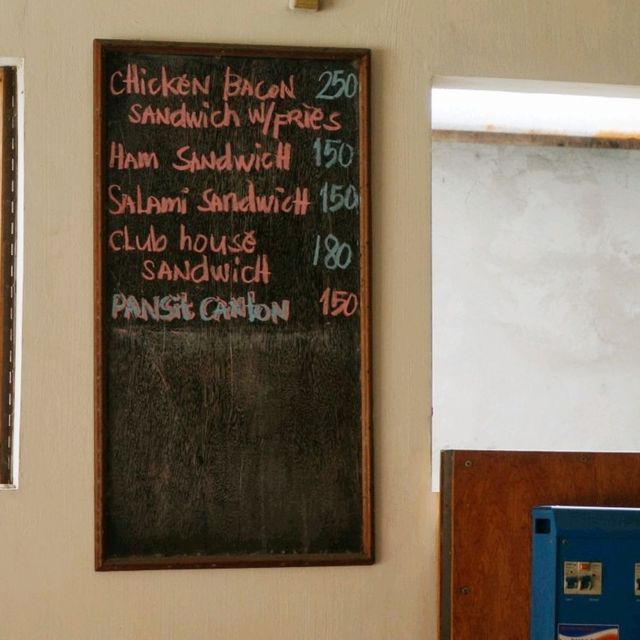 CHICKEN BACON 250
SANDWICH W/FRIES
HAM SANDWICH 150
SALAMI SANDWICH 150
CLUB HOUSE 180
SANDWICH
PANSIT CANTON 150